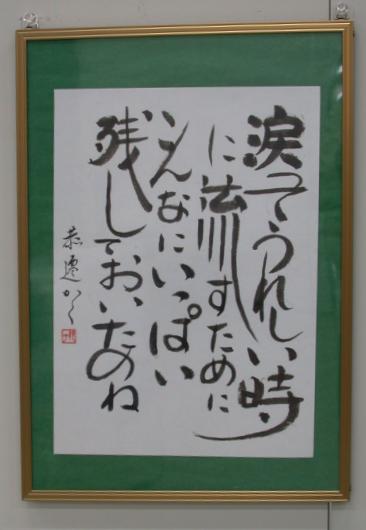 涙ってうれしい時
に流すために
こんなにいっぱい
残しておいたのね
恭遷かく